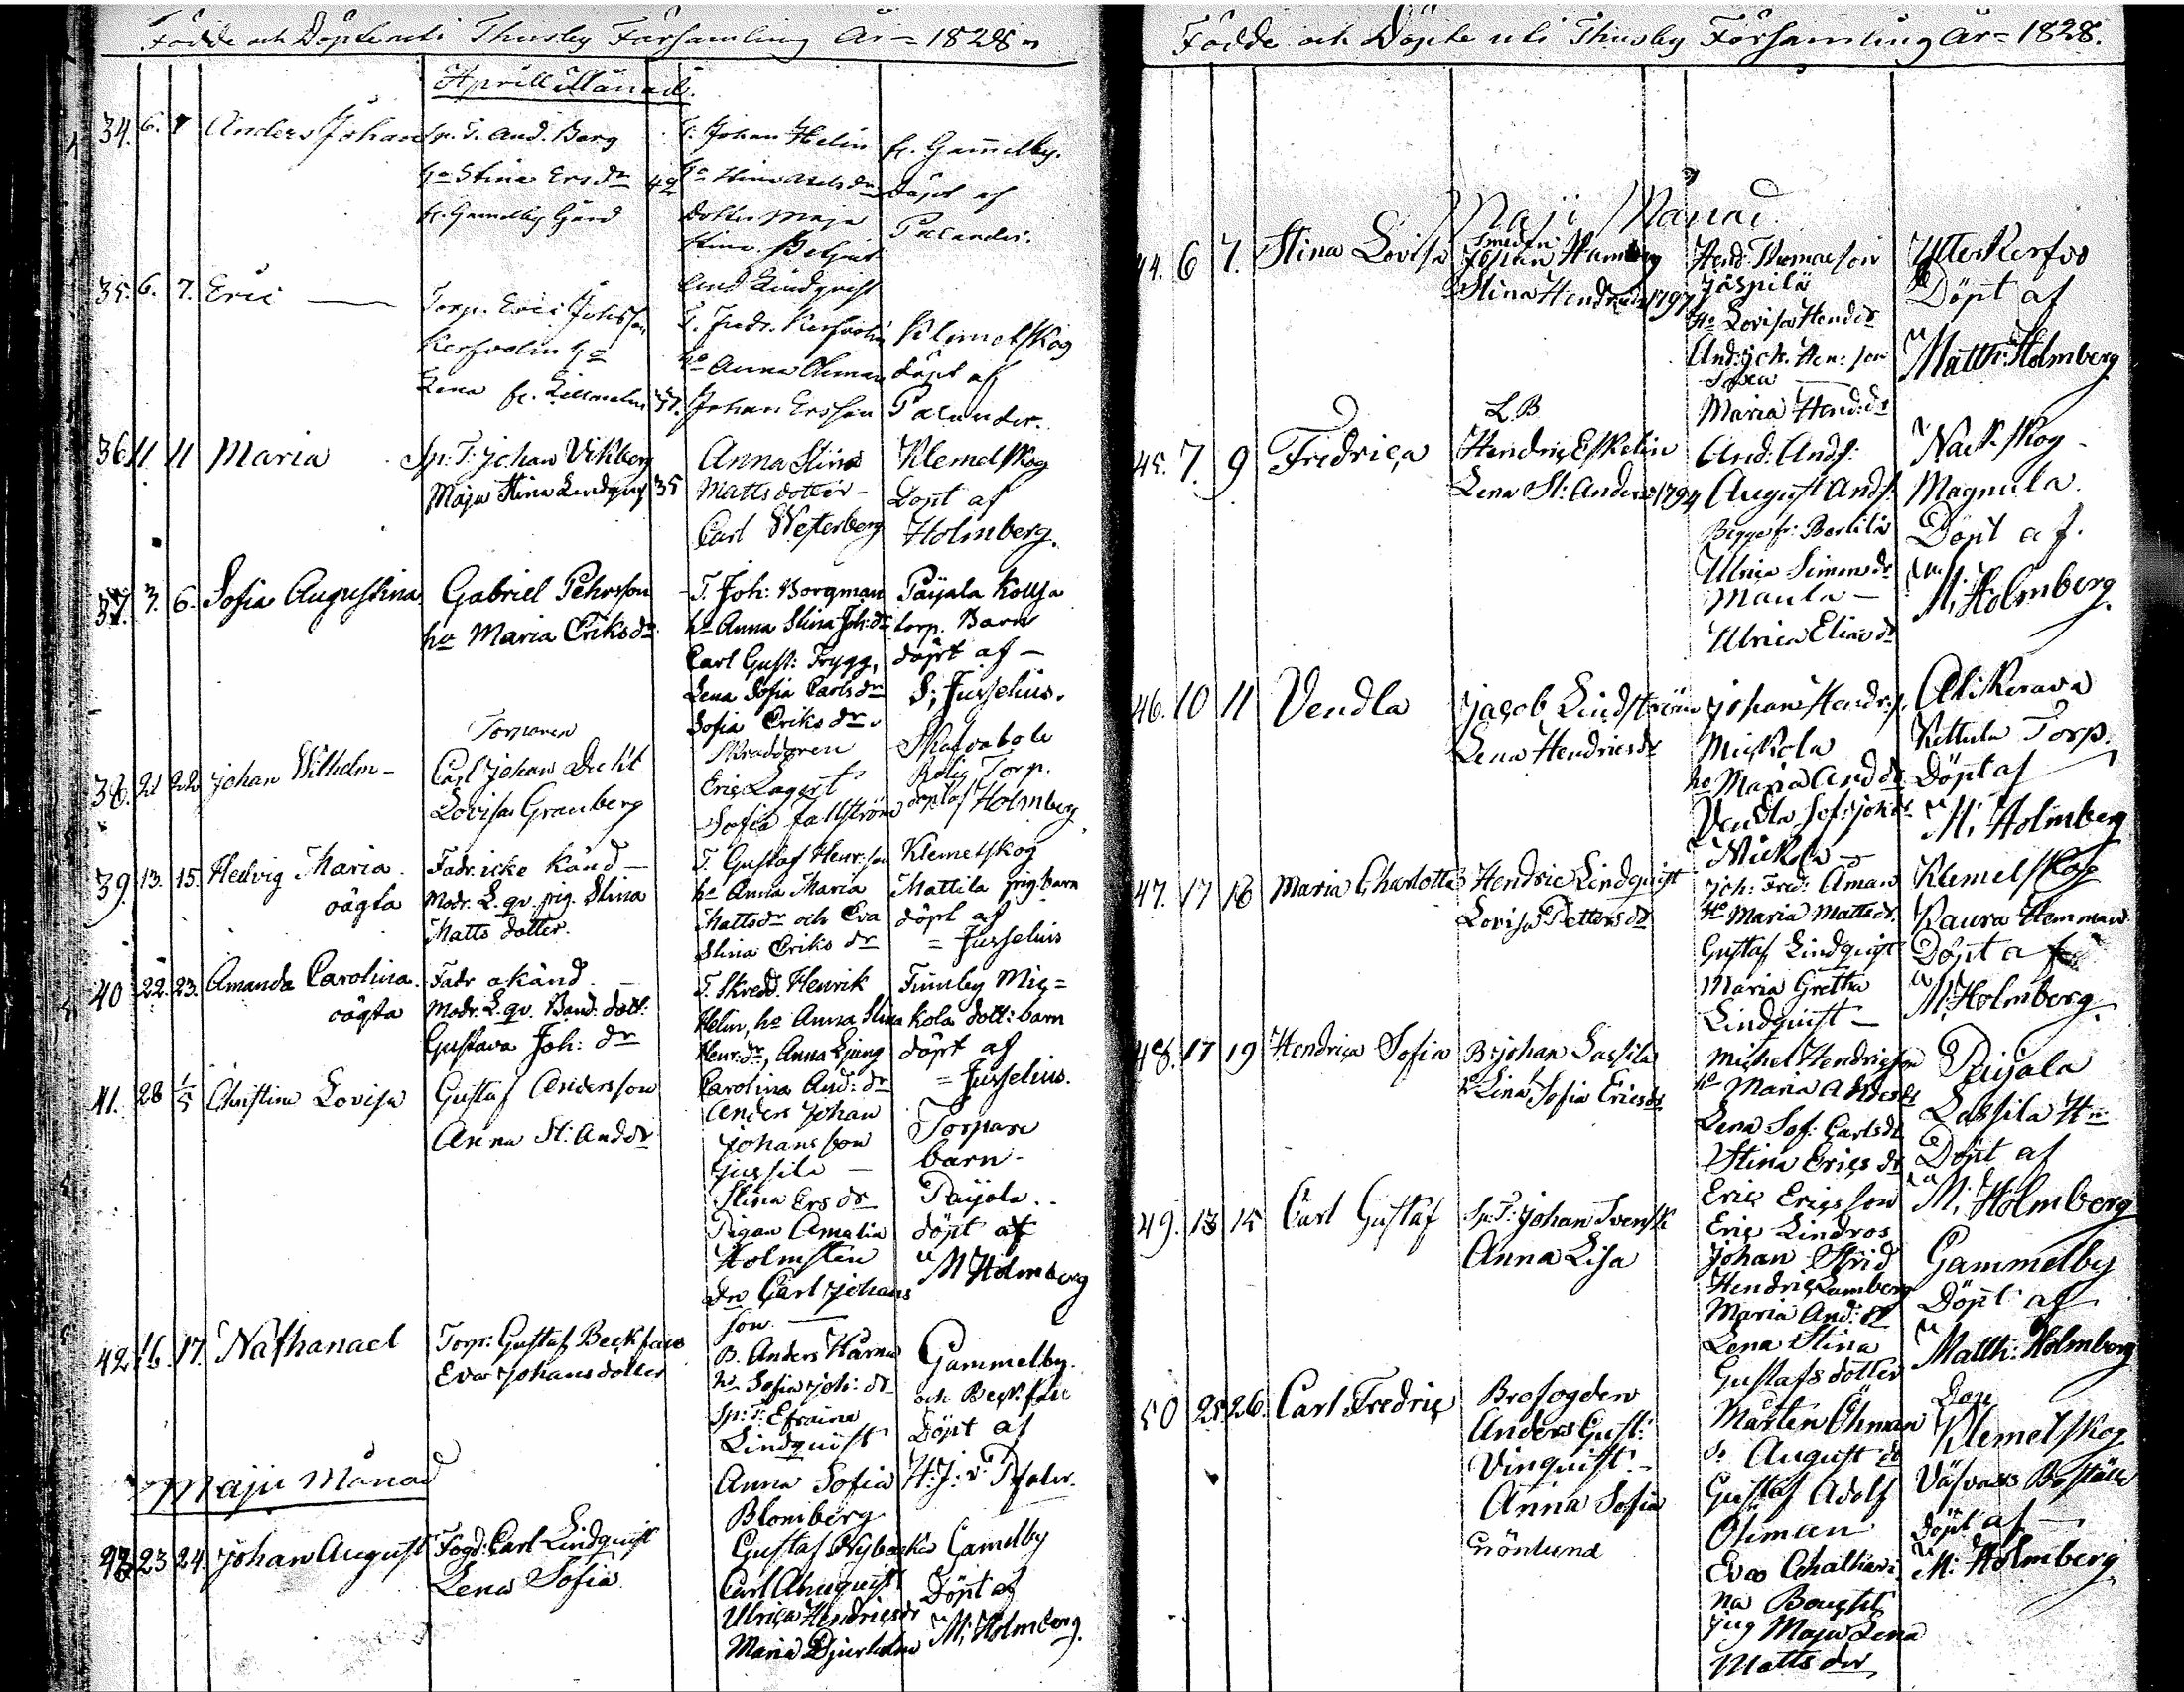 Födde och Döpte uti Thusby Församling År = 1828
Aprill Månad.
34. 6. 7 Anders Johan
Sp. T. And. Berg
ho Stina Ersdr 42
fr. Gamelby Gård
T. Johan Helin
Dotter Maja
Stina
And Lindqvist
fr. Gamelby.
döpt af
Palander.
35. 6. 7. Eric
Torp. Eric Johsson
Kerfvolin ho
Lena fr. 37.
T. Fredr. Kerfvolin
ho Anna Öhman
Johan Ersson
Klemetskog
döpt af
Palander.
36 11 11 Maria
Sp: T: Johan Vikberg
Maja Stina Lindqvist 35
Anna Stina
Matts dotter -
Carl Westerberg
Klemetskog
Döpt af
Holmberg.
37. 3. 6. Sofia Augustina.
Gabriel Pehrsson
ho Maria Eriksdr
T. Joh: Borgman
ho Anna Stina Joh:dr
Carl Gust: Trygg,
Lena Sofia Carlsdr
Sofia Eriks dr.
Paijala Kollsa
torp. Barn
döpt af -
S: Jusselius.
38. 21 22 Johan Wilhelm -
Torparen
Carl Johan
Lovisa Granberg
Skraddaren
Eric Lagert
Sofia Fallström
Skafvabole
Rolig Torp.
döpt af Holmberg
39. 13. 15. Hedvig Maria.
oägta
Fadr. icke känd -
Modr. L. qv. pig. Stina
Matts dotter.
T. Gustaf Henr:son
ho Anna Maria
Mattsdr och Eva
Stina Eriks dr
Klemetskog
Mattila pig. barn
döpt af
= Jusselius
40 22. 23. Amanda Carolina.
oägta
Fadr okänd. -
Modr. L. qv. Bond. dott:
Gustava Joh: dr
T. Skredd. Henrik
Helin, ho Anna Stina
Henr:dr, Anna Ljung
Carolina And: dr
Finnby Mic=
kola dott: barn
döpt af
= Jusselius.
41. 28 1/5 Christina Lovisa
Gustaf Andersson
Anna St: And dr
Anders Johan
Johansson
Jussila -
Stina Ers dr
Pigan Amalia
Holmsten
Dr Carl Johans
son. -
Torpare
barn -
Paijala.
döpt af
M Holmberg
42. 16. 17. Nathanael
Torp: Gustaf Beckfors
Eva Johansdotter
B. Anders
ho Sofia Joh: dr
Sp: T: Efraim
Lindqvist
Anna Sofia
Blomberg
Gammelby.
och
Döpt af
H: J: v: Pfaler.
Maji Månad
43 23 24. Johan August
Fogd: Carl Lindqvist
Lena Sofia
Gustaf Nybacka
Carl
Ulrica Hendricsdr
Maria Djurholm
Gamelby
Döpt af
M: Holmberg.
Födde och Döpte uti Thusby Församling År = 1828.
Maji Månad
44. 6 7. Stina Lovisa
Smeden
Johan Hamberg
Stina Hendricsdr 1797
Hend: Thomasson
Jäspilä
ho Lovisa Hend dr
And: Joh. Hen: son
Maria Hend: dr
Ytterkerfvo
Döpt af
Matth: Holmberg
45. 7. 9 Fredrica
L. B
Hendric Eskelin
Lena St: Andersdr 1794
And: Ands:
August Ands:
Begge fr: Bertila
Ulrica Simonsdr
Maula -
Ulrica Elias dr
Nackskog -
Magnula.
Döpt af.
M: Holmberg.
46. 10 11 Vendla
Jacob Lindström
Lena Hendricsdr
Johan Hendr:s.
Mickola
ho Maria And dr
Vendla Sof: Joh dr
Mickola -
Alikerava
Kettula Torp.
Döpt af
M: Holmberg
47. 17 18 Maria Charlotta
Hendric Lindqvist
Lovisa Petters dr
Joh: Fred: Åman
ho Maria Matts dr.
Gustaf Lindqvist
Maria Gretha
Lindqvist -
Klemetskog
Kaura Hemman
Döpt af
M: Holmberg.
48. 17 19 Hendrica Sofia
B. Johan Lassila
ho Lina Sofia Ericsdr
Michel Hendricsson
ho Maria Andersdr
Lena Sof: Carls dr
Stina Erics dr
Eric Ericsson
Paijala
Lassila Hn
Döpt af
M: Holmberg
49. 13 15 Carl Gustaf
Sp: T: Johan Svensk
Anna Lisa
Eric Lindros
Johan Strid
Hendric Lamberg
Maria And: dr
Lena Stina
Gustafs dotter
Gammelby
Döpt af
Matth: Holmberg
50 25 26. Carl Fredric
Brofogden
Anders Gust:
Vinqvist. -
Anna Sofia
Grönlund
Mårten Öhman
Sr August dr
Gustaf Adolf
Öhman
Eva Chathari
na
Jug Maja Lena
Matts dr
Klemetskog
Boställe
döpt af -
M: Holmberg